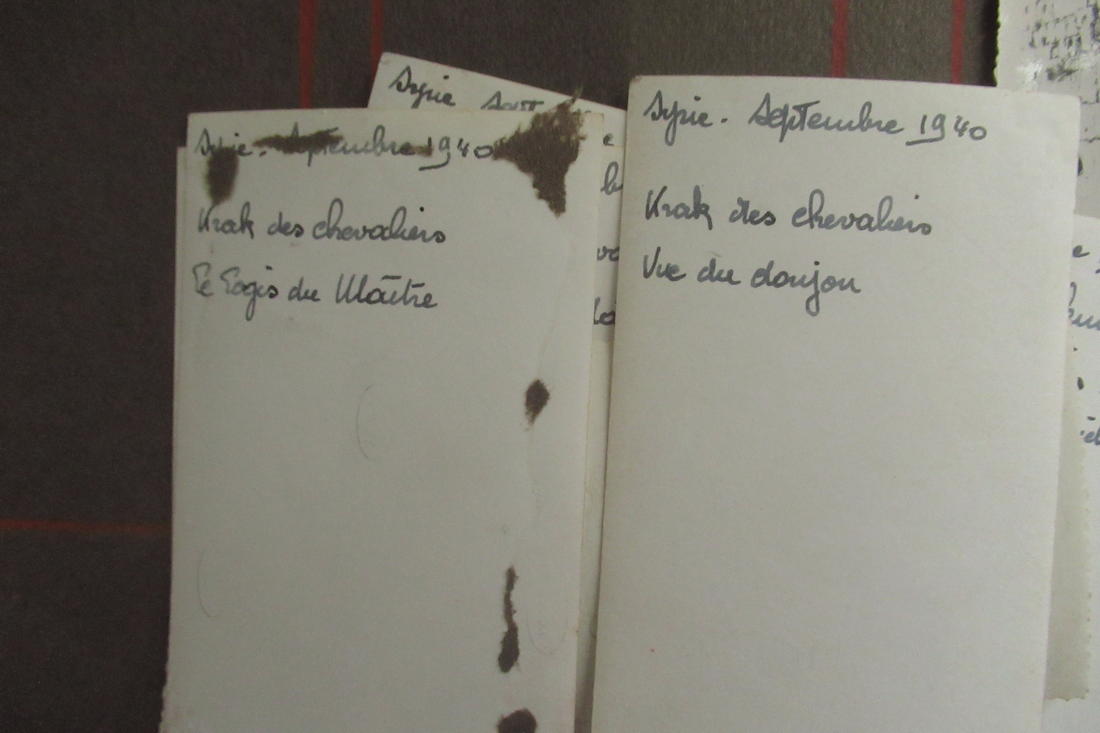 Syrie. Septembre 1940
Krak des chevaliers
Le Logis du Maître
Syrie
Syrie. Septembre 1940
Krak des chevaliers
Vue du donjon